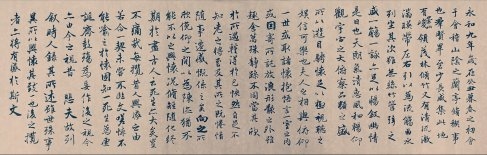 永和九年歲在癸丑暮春之初會
于會稽山陰之蘭亭脩禊事
也群賢畢至少長咸集此地
有崇領茂林脩竹又有清流激
湍暎帶左右引以為流觴曲水
列坐其次雖無絲竹管弦之
盛一觴一詠亦足以暢敘幽情
是日也天朗氣清惠風和暢仰
觀宇宙之大俯察品類之盛
所以遊目騁懷足以極視聽之
娛信可樂也夫人之相與俯仰
一世或取諸懷抱悟言一室之內
或因寄所託放浪形骸之外雖
趣舍萬殊靜躁不同當其欣
於所遇暫得於己怏然自足不
知老之將至及其所之既惓情
隨事遷感慨係之矣向之所
欣俛仰之閒以為陳迹猶不
能不以之興懷況脩短隨化終
期於盡古人云死生亦大矣豈
不痛哉每攬昔人興感之由
若合一契未嘗不臨文嗟悼不
能喻之於懷固知一死生為虛
誕齊彭殤為妄作後之視今
亦由今之視昔悲夫故列
敘時人錄其所述雖世殊事
異所以興懷其致一也後之攬
者亦將有感於斯文